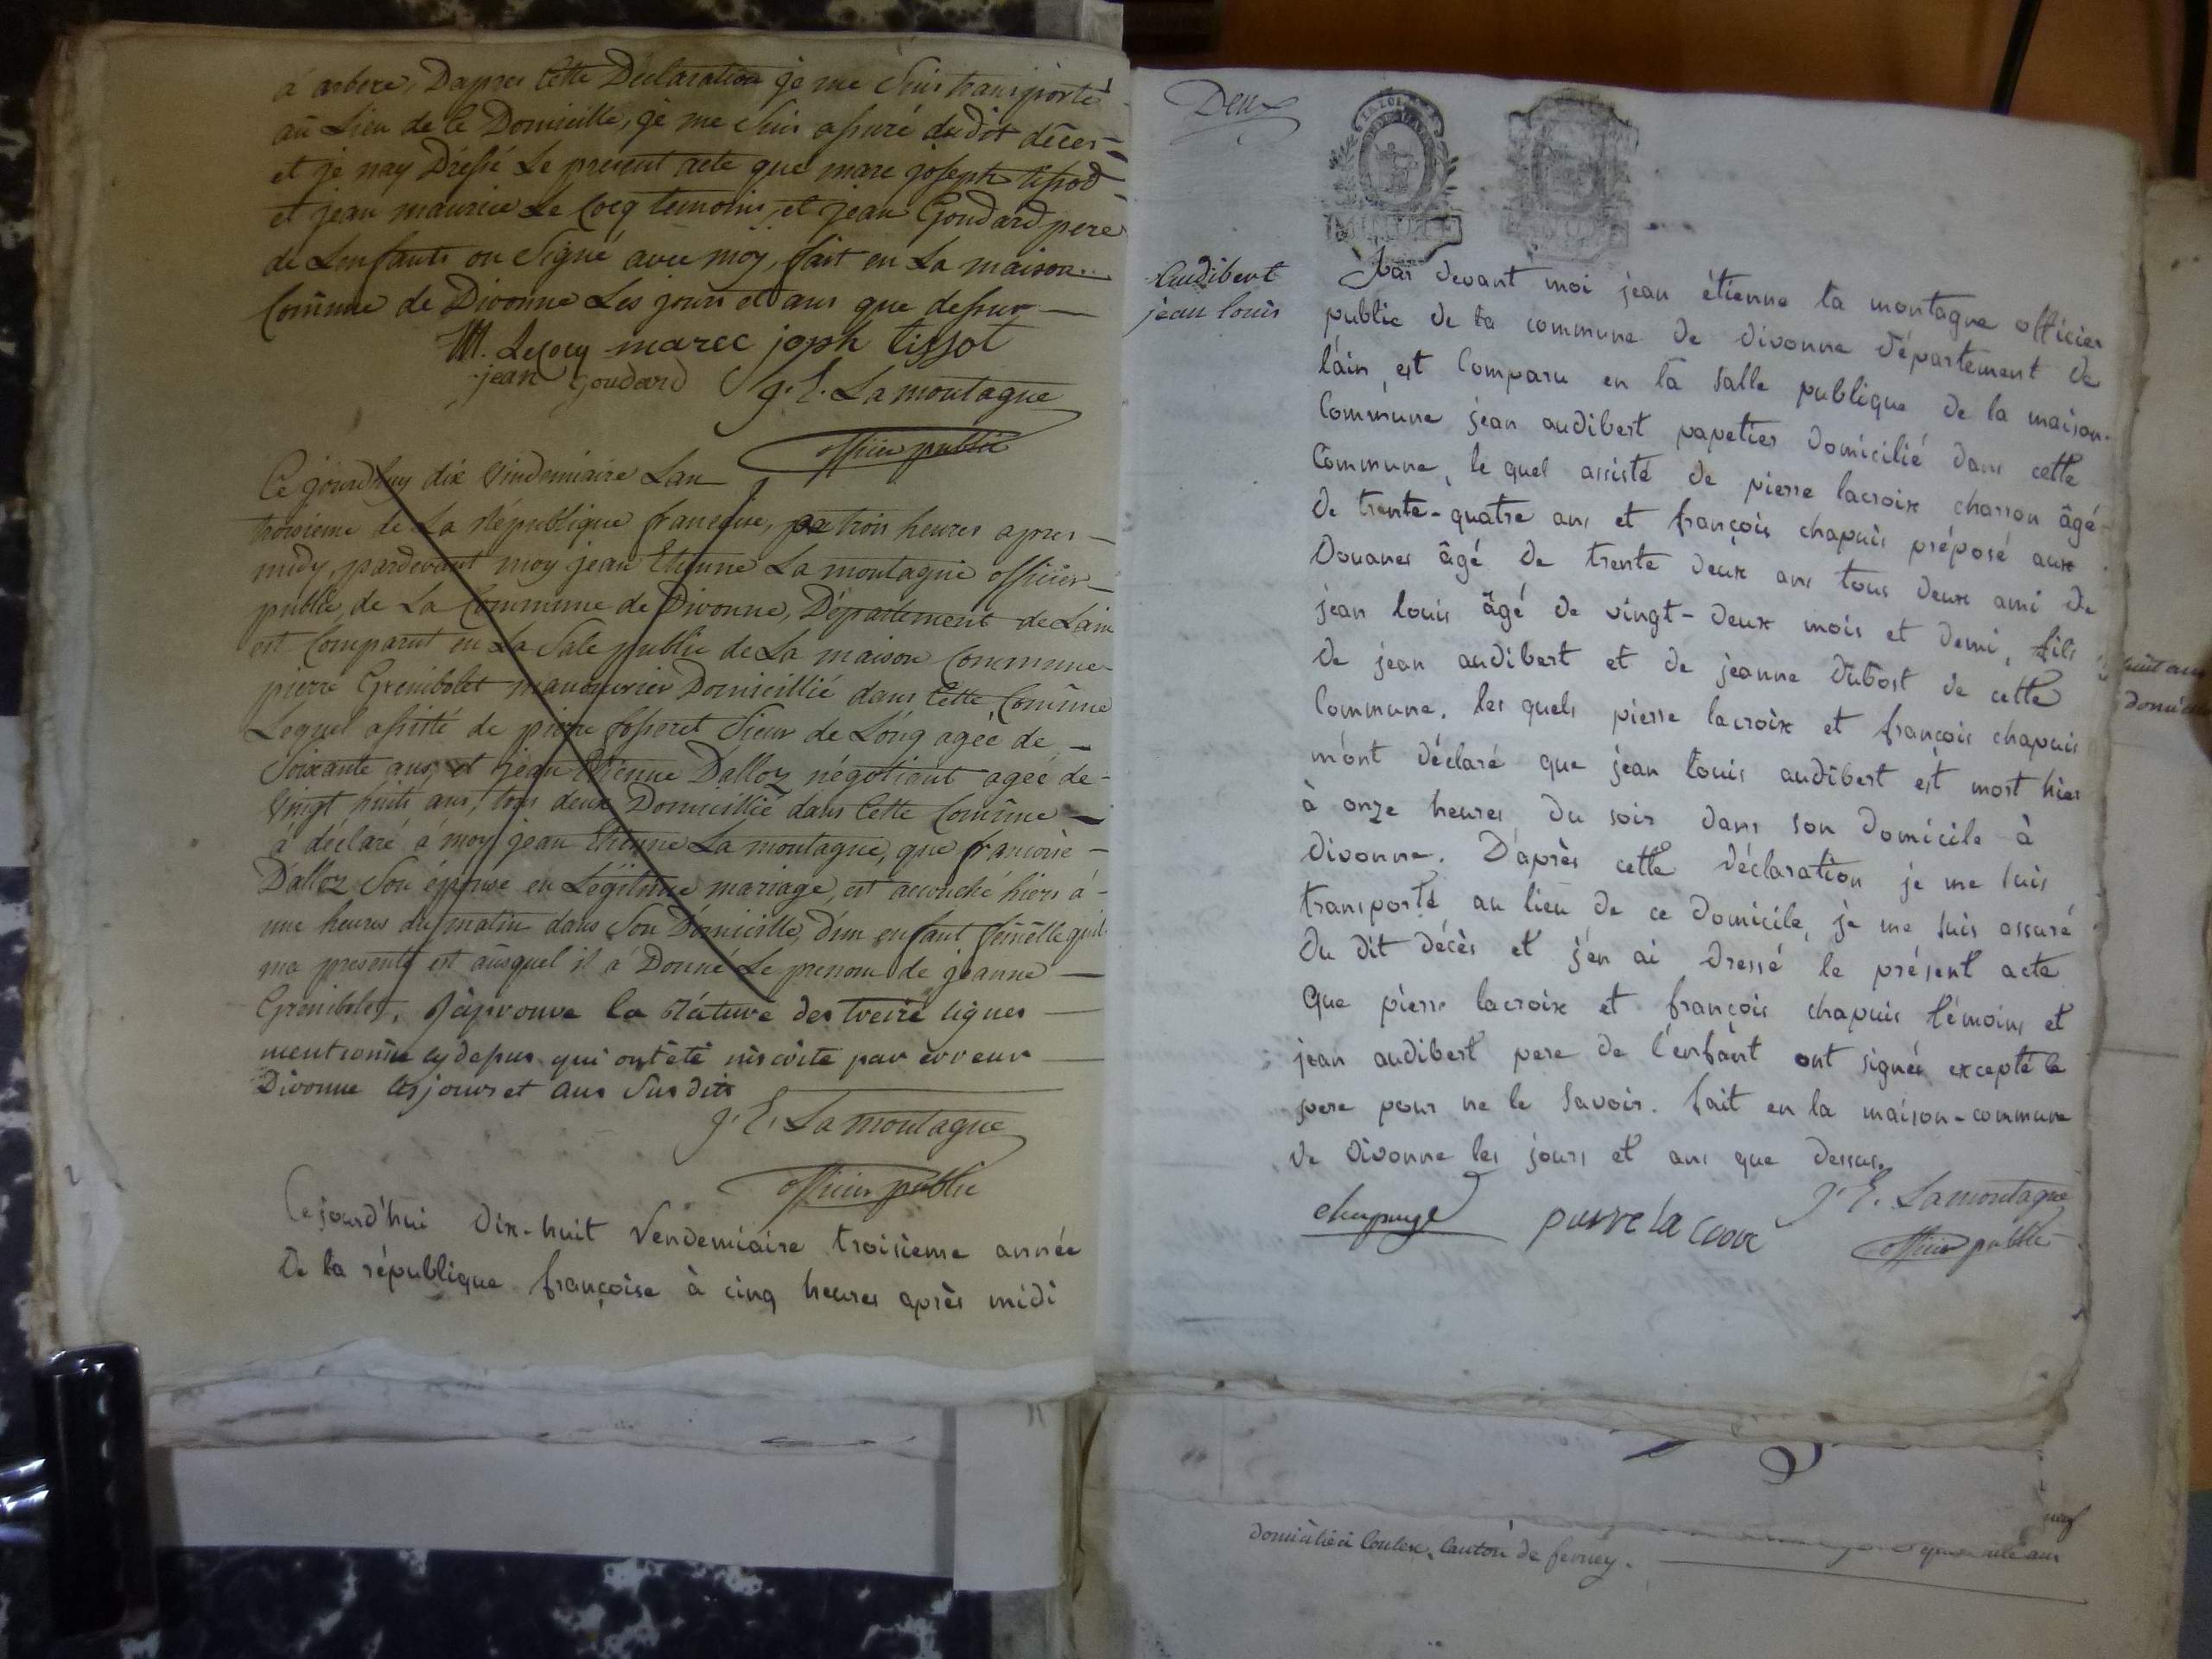 à arbere, Dapres Cette Déclaration je me Suis transporté
au Lieu de Ce Domicille, je me Suis assuré dudit déces
et je nay Dressé Le present acte que marc joseph tissod
et jean maurice Le Cocq temoins, et jean Goudard pere
de Lenfants on Signé avec moy, fait en La maison
Comune de Divonne Les jours et ans que dessus
M. Lecocq marcc joph tissot
jean goudard J. E. Lamontagne
officier public
Ce jourdhuy dix Vindemiaire Lan
troisieme de La République francaise, a trois heures apres
midy, pardevant moy jean Etienne La montagne officier
public de La Commune de Divonne, Département de Lain
est Comparut en La Sale public de La maison Commune
pierre Grenibolet manouvrier Domicillié dans Cette Comune
Lequel assisté de pierre fosseret Sieur de Lóng ageé de
Soixante ans, et jean Etienne Dalloz négotiant ageé de
Vingt huits ans, tous deux Domicillié dans Cette Comune
à déclaré à moy jean Etienne La montagne, que francoise
Dalloz Son épouse en Légitime mariage, est accouché hiers à
une heures du matin dans Son Domicille, d'un enfant femelle quil
ma presenté est ausquel il à Donné Le prenom de jeanne
Grenibolet, Japrouve la Rature des treize lignes
mentionée cy desus qui ont été inscrite par erreur
Divonne les jours et ans Susdits
J. E. Lamontagne
officier public
Cejourd'hui Dix-huit Vendemiaire troisieme année
De la république françoise à cinq heures après midi
Deux
LA LOI
MINUTE
Audibert
jean louis
Par devant moi jean étienne la montagne officier
public de la commune de divonne département de
l'ain, est Comparu en la salle publique de la maison-
Commune jean audibert papetier domicilié dans cette
Commune, le quel assisté de pierre lacroix charron âgé
de trente-quatre ans et françois chapuis préposé aux
Douanes âgé de trente deux ans tous deux ami de
jean louis âgé de vingt-deux mois et demi, fils
de jean audibert et de jeanne dubost de cette
Commune. les quels pierre lacroix et françois chapuis
m'ont déclaré que jean louis audibert est mort hier
à onze heures du soir dans son domicile à
divonne. D'après cette déclaration je me suis
transporté au lieu de ce domicile, je me suis assuré
Du dit décès et j'en ai dressé le présent acte
Que pierre lacroix et françois chapuis témoins et
jean audibert pere de l'enfant ont signés excepté le
pere pour ne le savoir. fait en la maison-commune
de divonne les jours et ans que dessus.
J. E. Lamontagne
chapuye pierre la Croix officier public
domicilié à . canton de ferney.